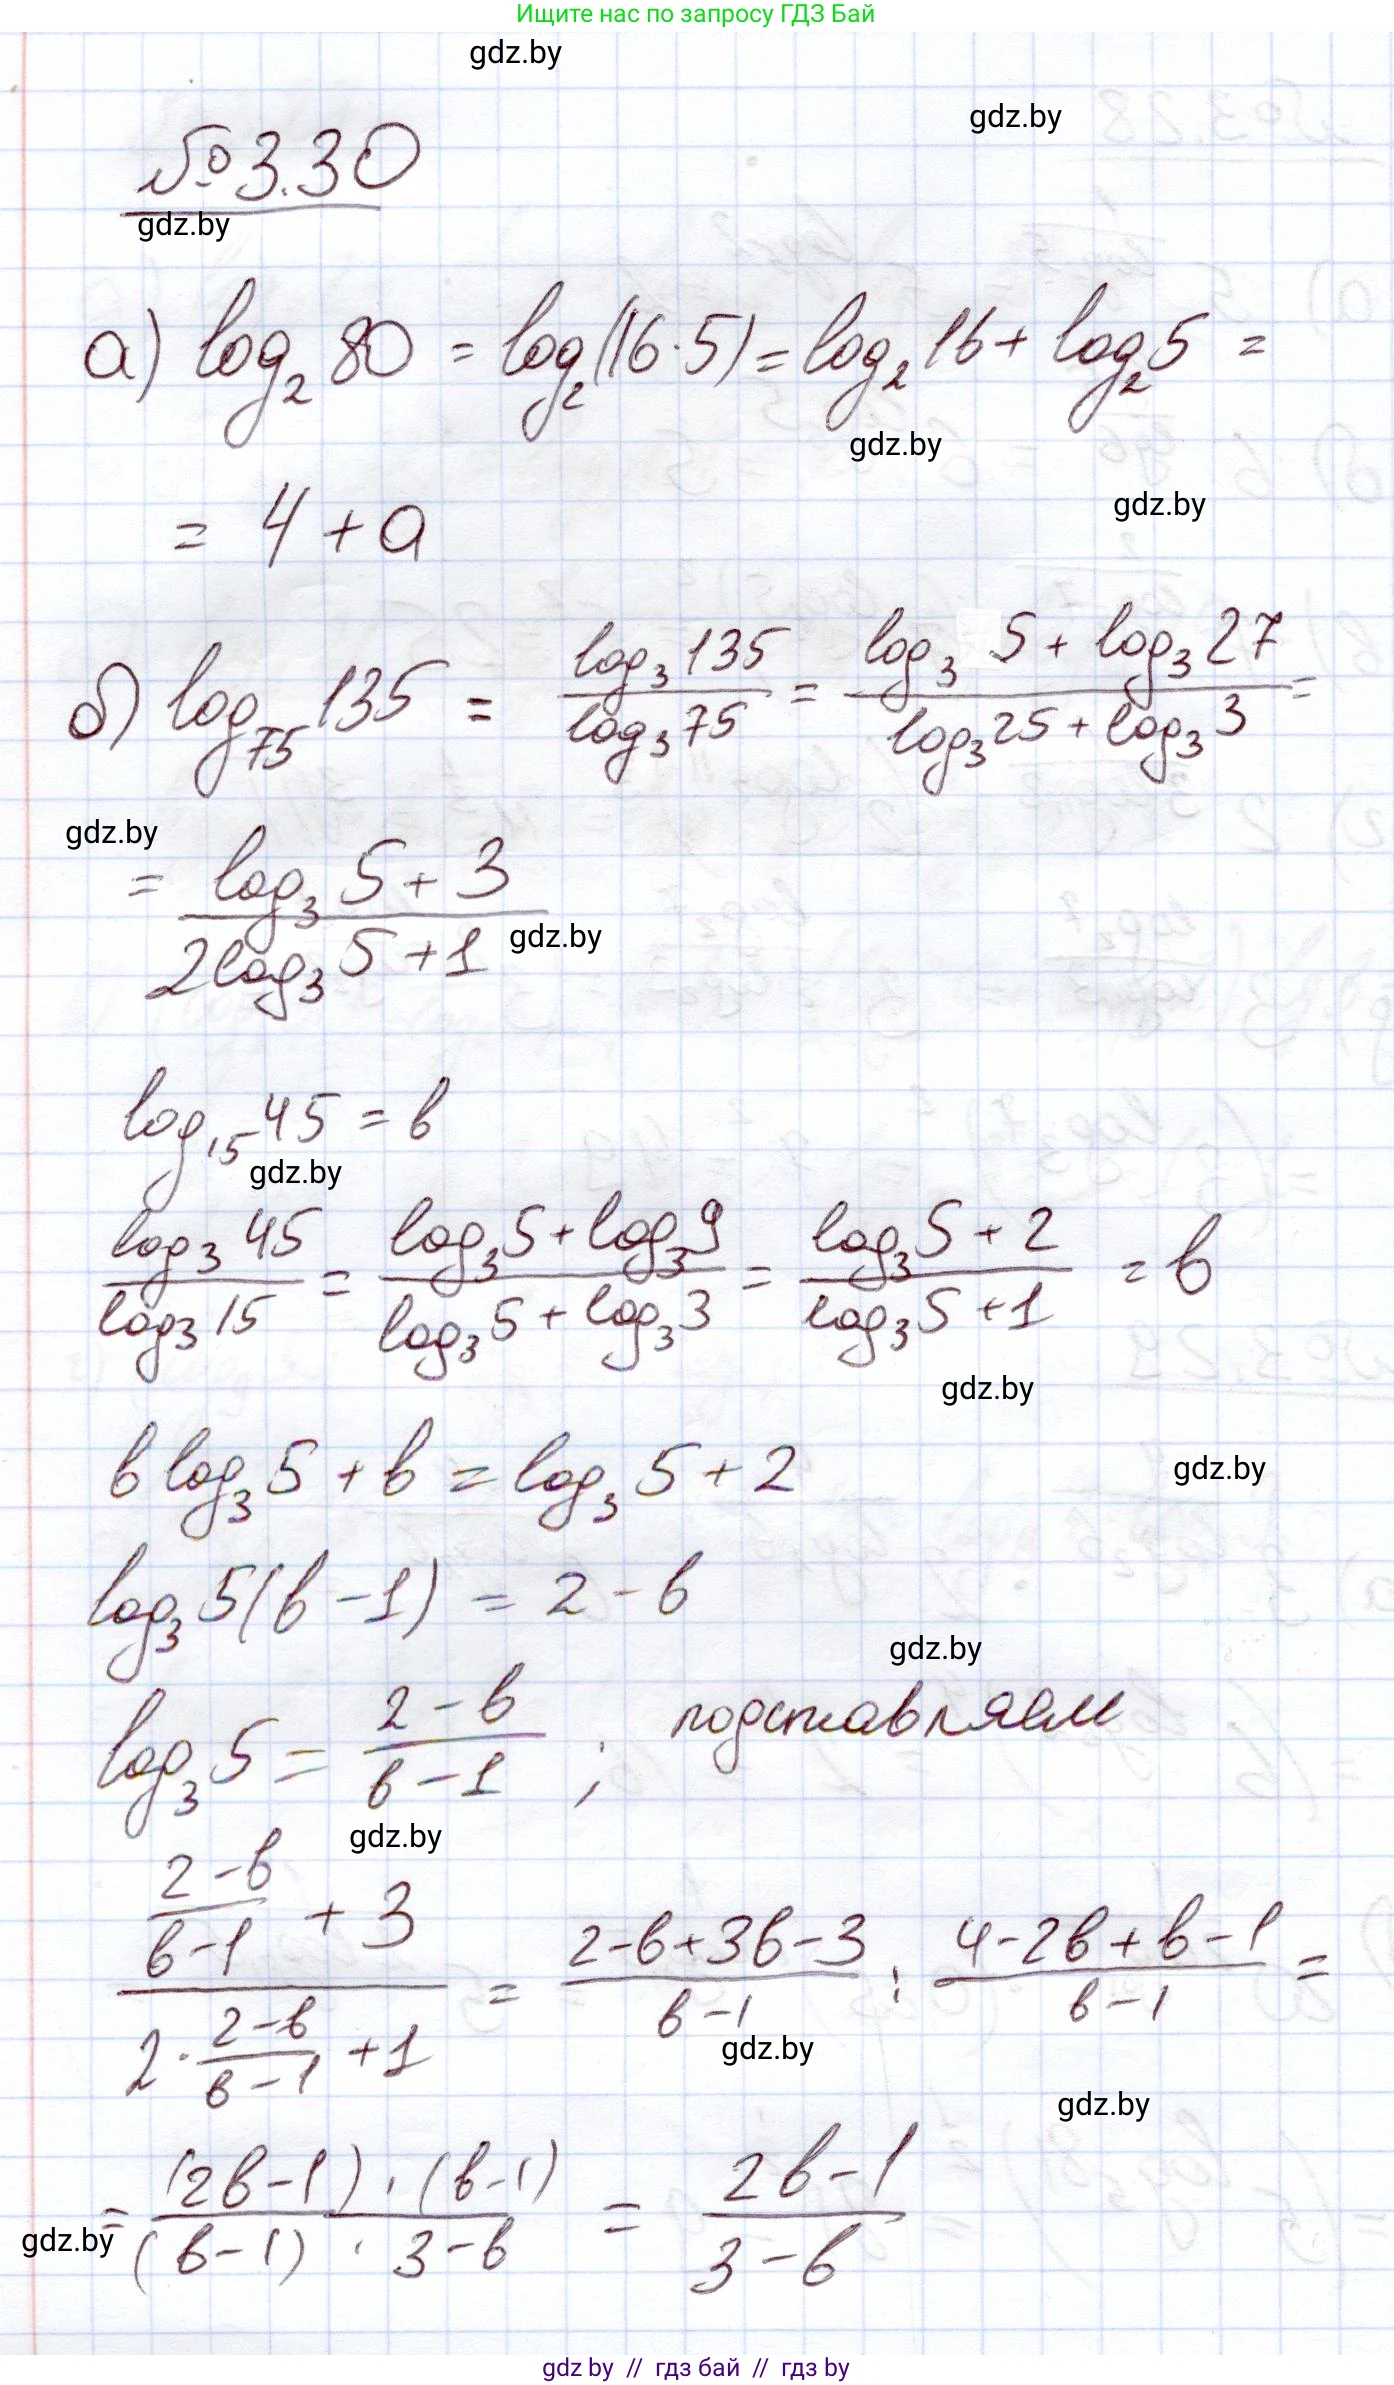 Ищите нас по запросу ГДЗ Бай
gdz.by
gdz.by
№ 3.30
gdz.by
а) log₂ 80 = log₂(16·5) = log₂ 16 + log₂ 5 =
gdz.by
= 4 + a
gdz.by
б) log₇₅ 135 = log₃ 135 / log₃ 75 = (log₃ 5 + log₃ 27) / (log₃ 25 + log₃ 3) =
gdz.by
= (log₃ 5 + 3) / (2log₃ 5 + 1)
gdz.by
log₁₅ 45 = b
gdz.by
log₃ 45 / log₃ 15 = (log₃ 5 + log₃ 9) / (log₃ 5 + log₃ 3) = (log₃ 5 + 2) / (log₃ 5 + 1) = b
gdz.by
b log₃ 5 + b = log₃ 5 + 2
gdz.by
log₃ 5(b − 1) = 2 − b
gdz.by
log₃ 5 = (2 − b) / (b − 1) ; подставляем
gdz.by
((2−b)/(b−1) + 3) / (2·(2−b)/(b−1) + 1) = (2−b+3b−3)/(b−1) : (4−2b+b−1)/(b−1) =
gdz.by
gdz.by
= (2b−1)·(b−1) / (b−1)·3−b = (2b−1) / (3−b)
gdz.by
gdz by // гдз бай // гдз by